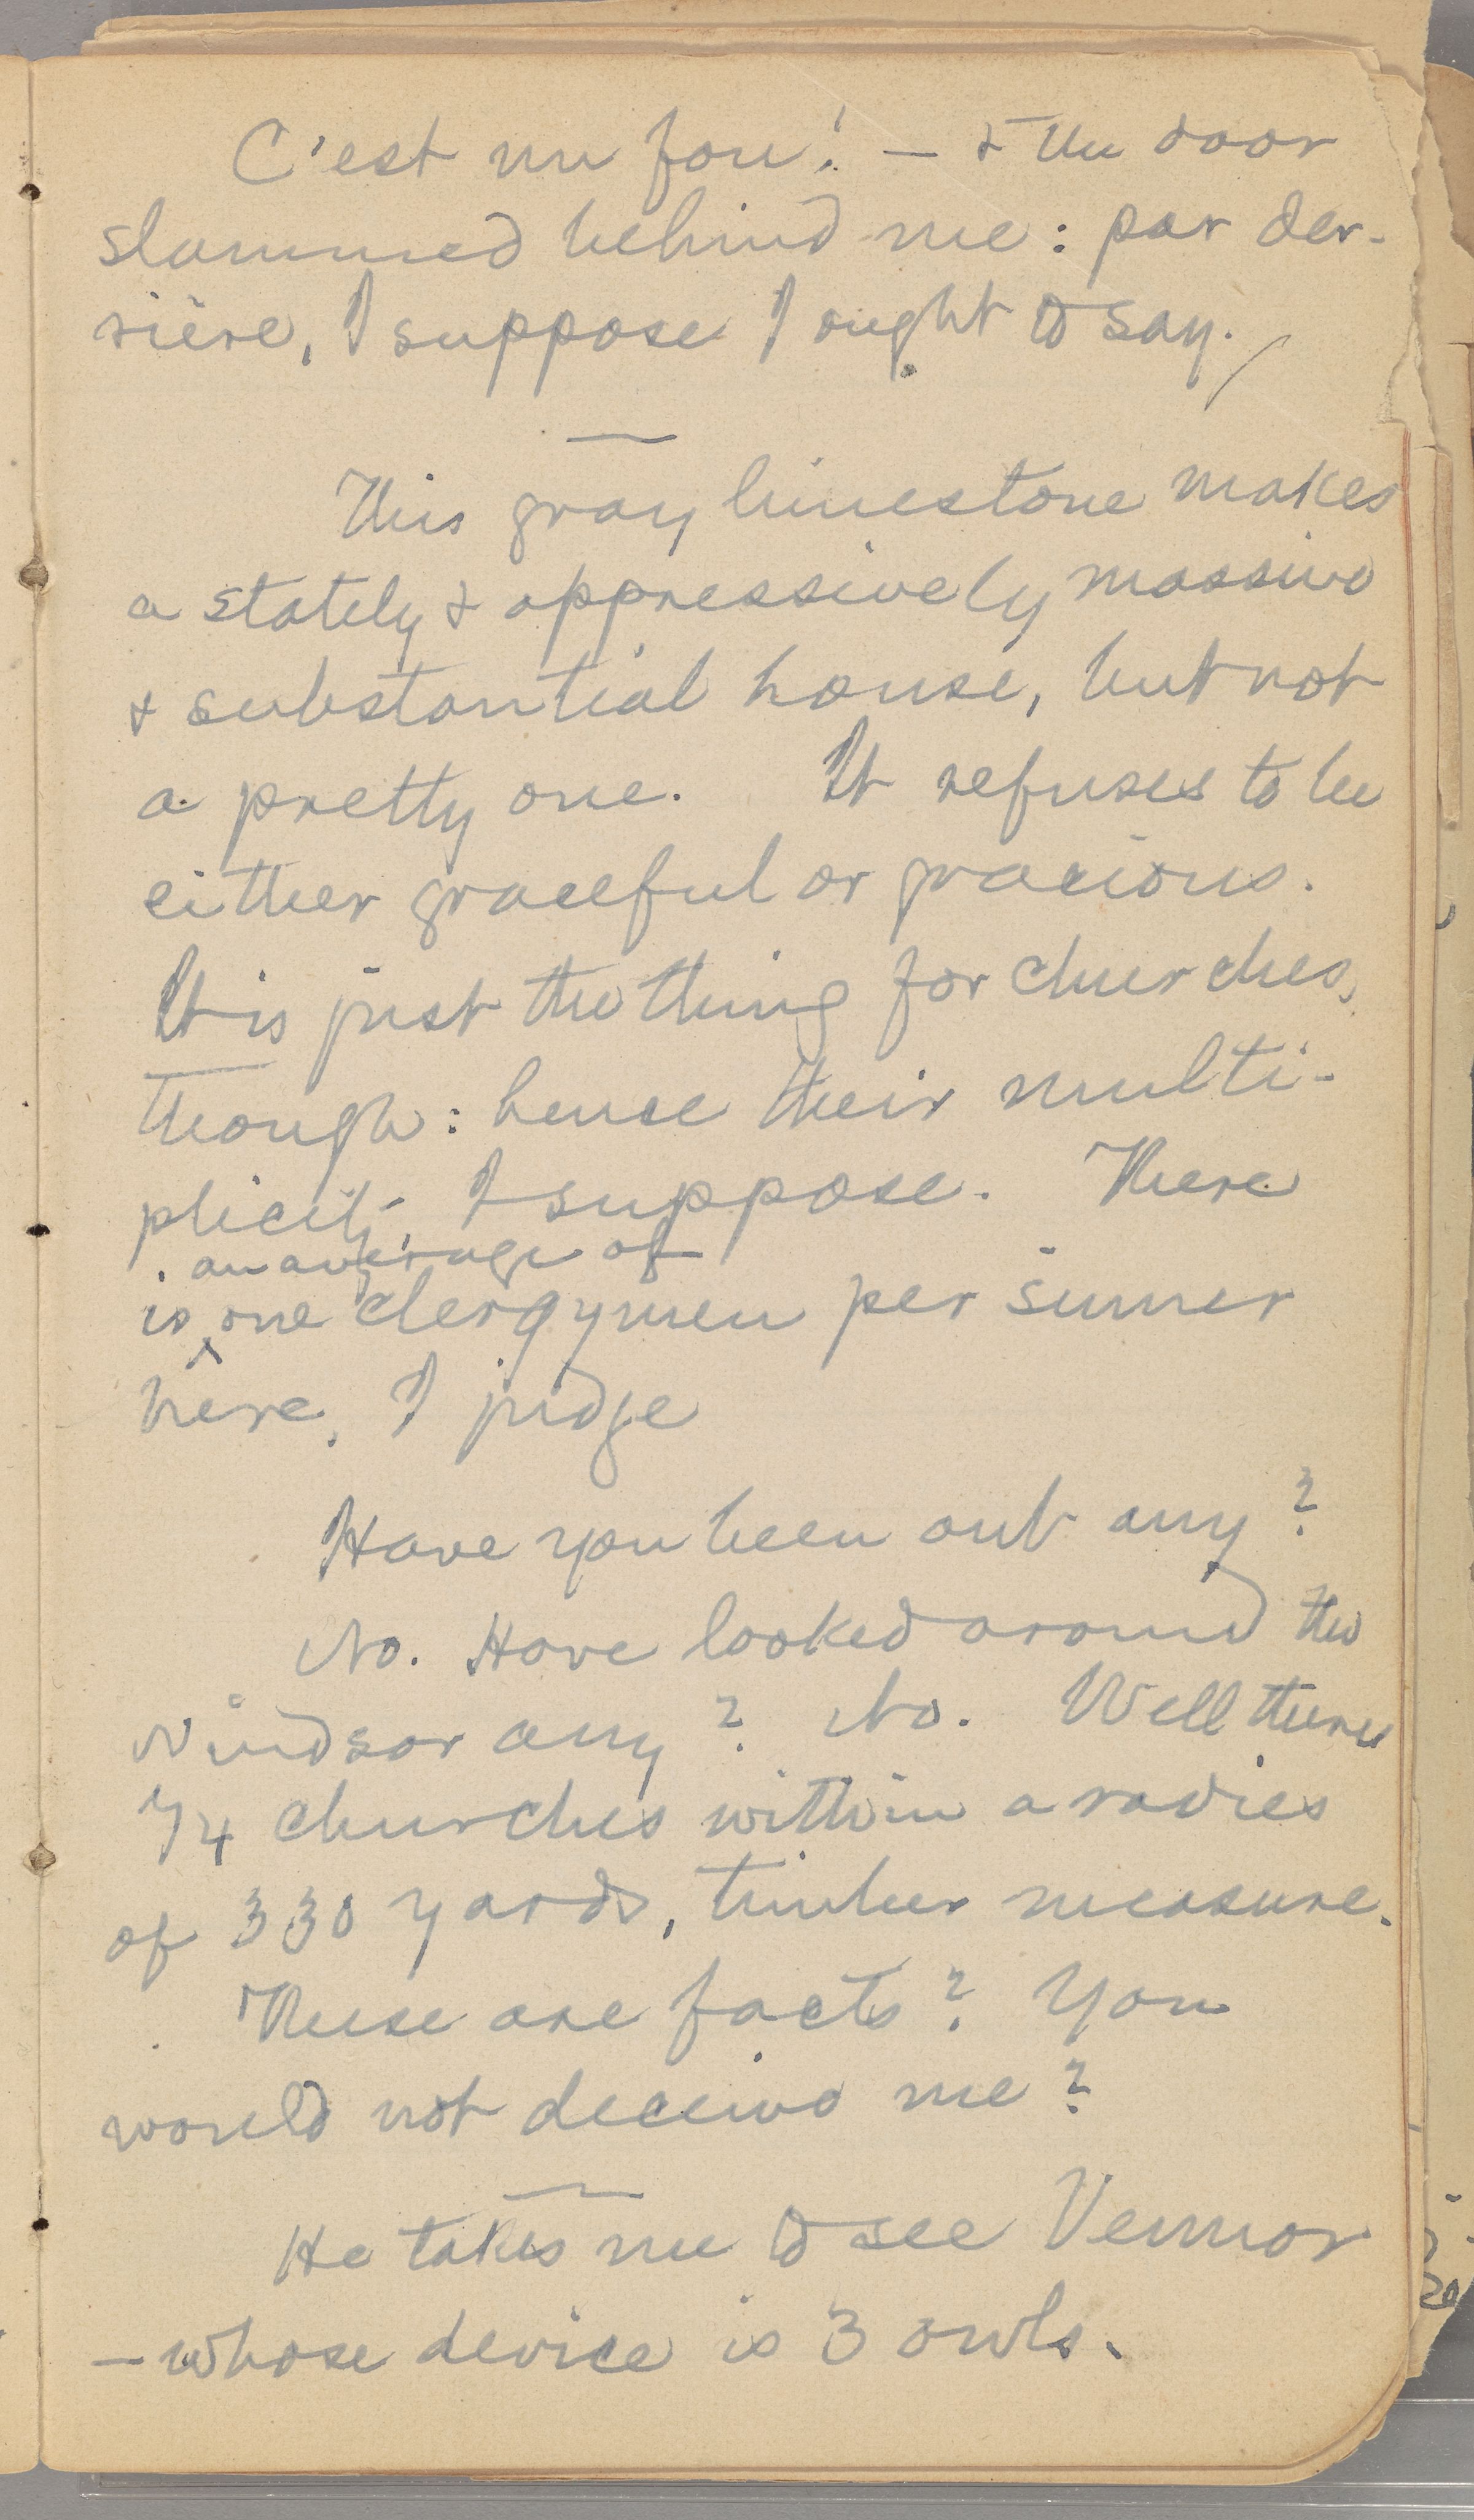 C'est un fou! — & the door
slammed behind me: par der-
rière, I suppose I ought to say.
This gray limestone makes
a stately & oppressively massive
& substantial house, but not
a pretty one. It refuses to be
either graceful or gracious.
It is just the thing for churches,
though: hence their multi-
plicity, I suppose. There
an average of
is one clergymen per sinner
here, I judge
Have you been out any?
No. Have looked around the
Windsor any? No. Well there
74 churches within a radies
of 330 yards, timber measure.
These are facts? You
would not deceive me?
He takes me to see Vennor
— whose device is 3 owls.